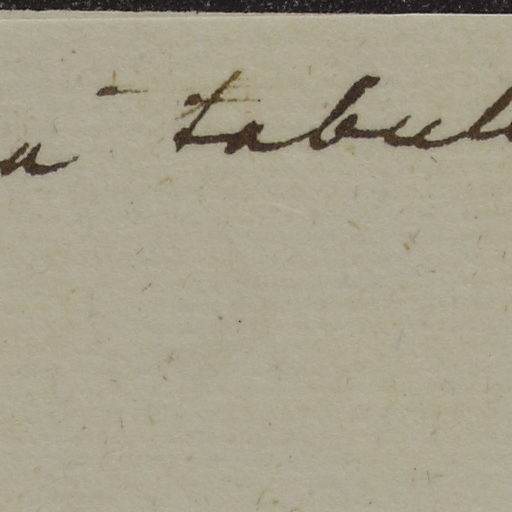 a tabul